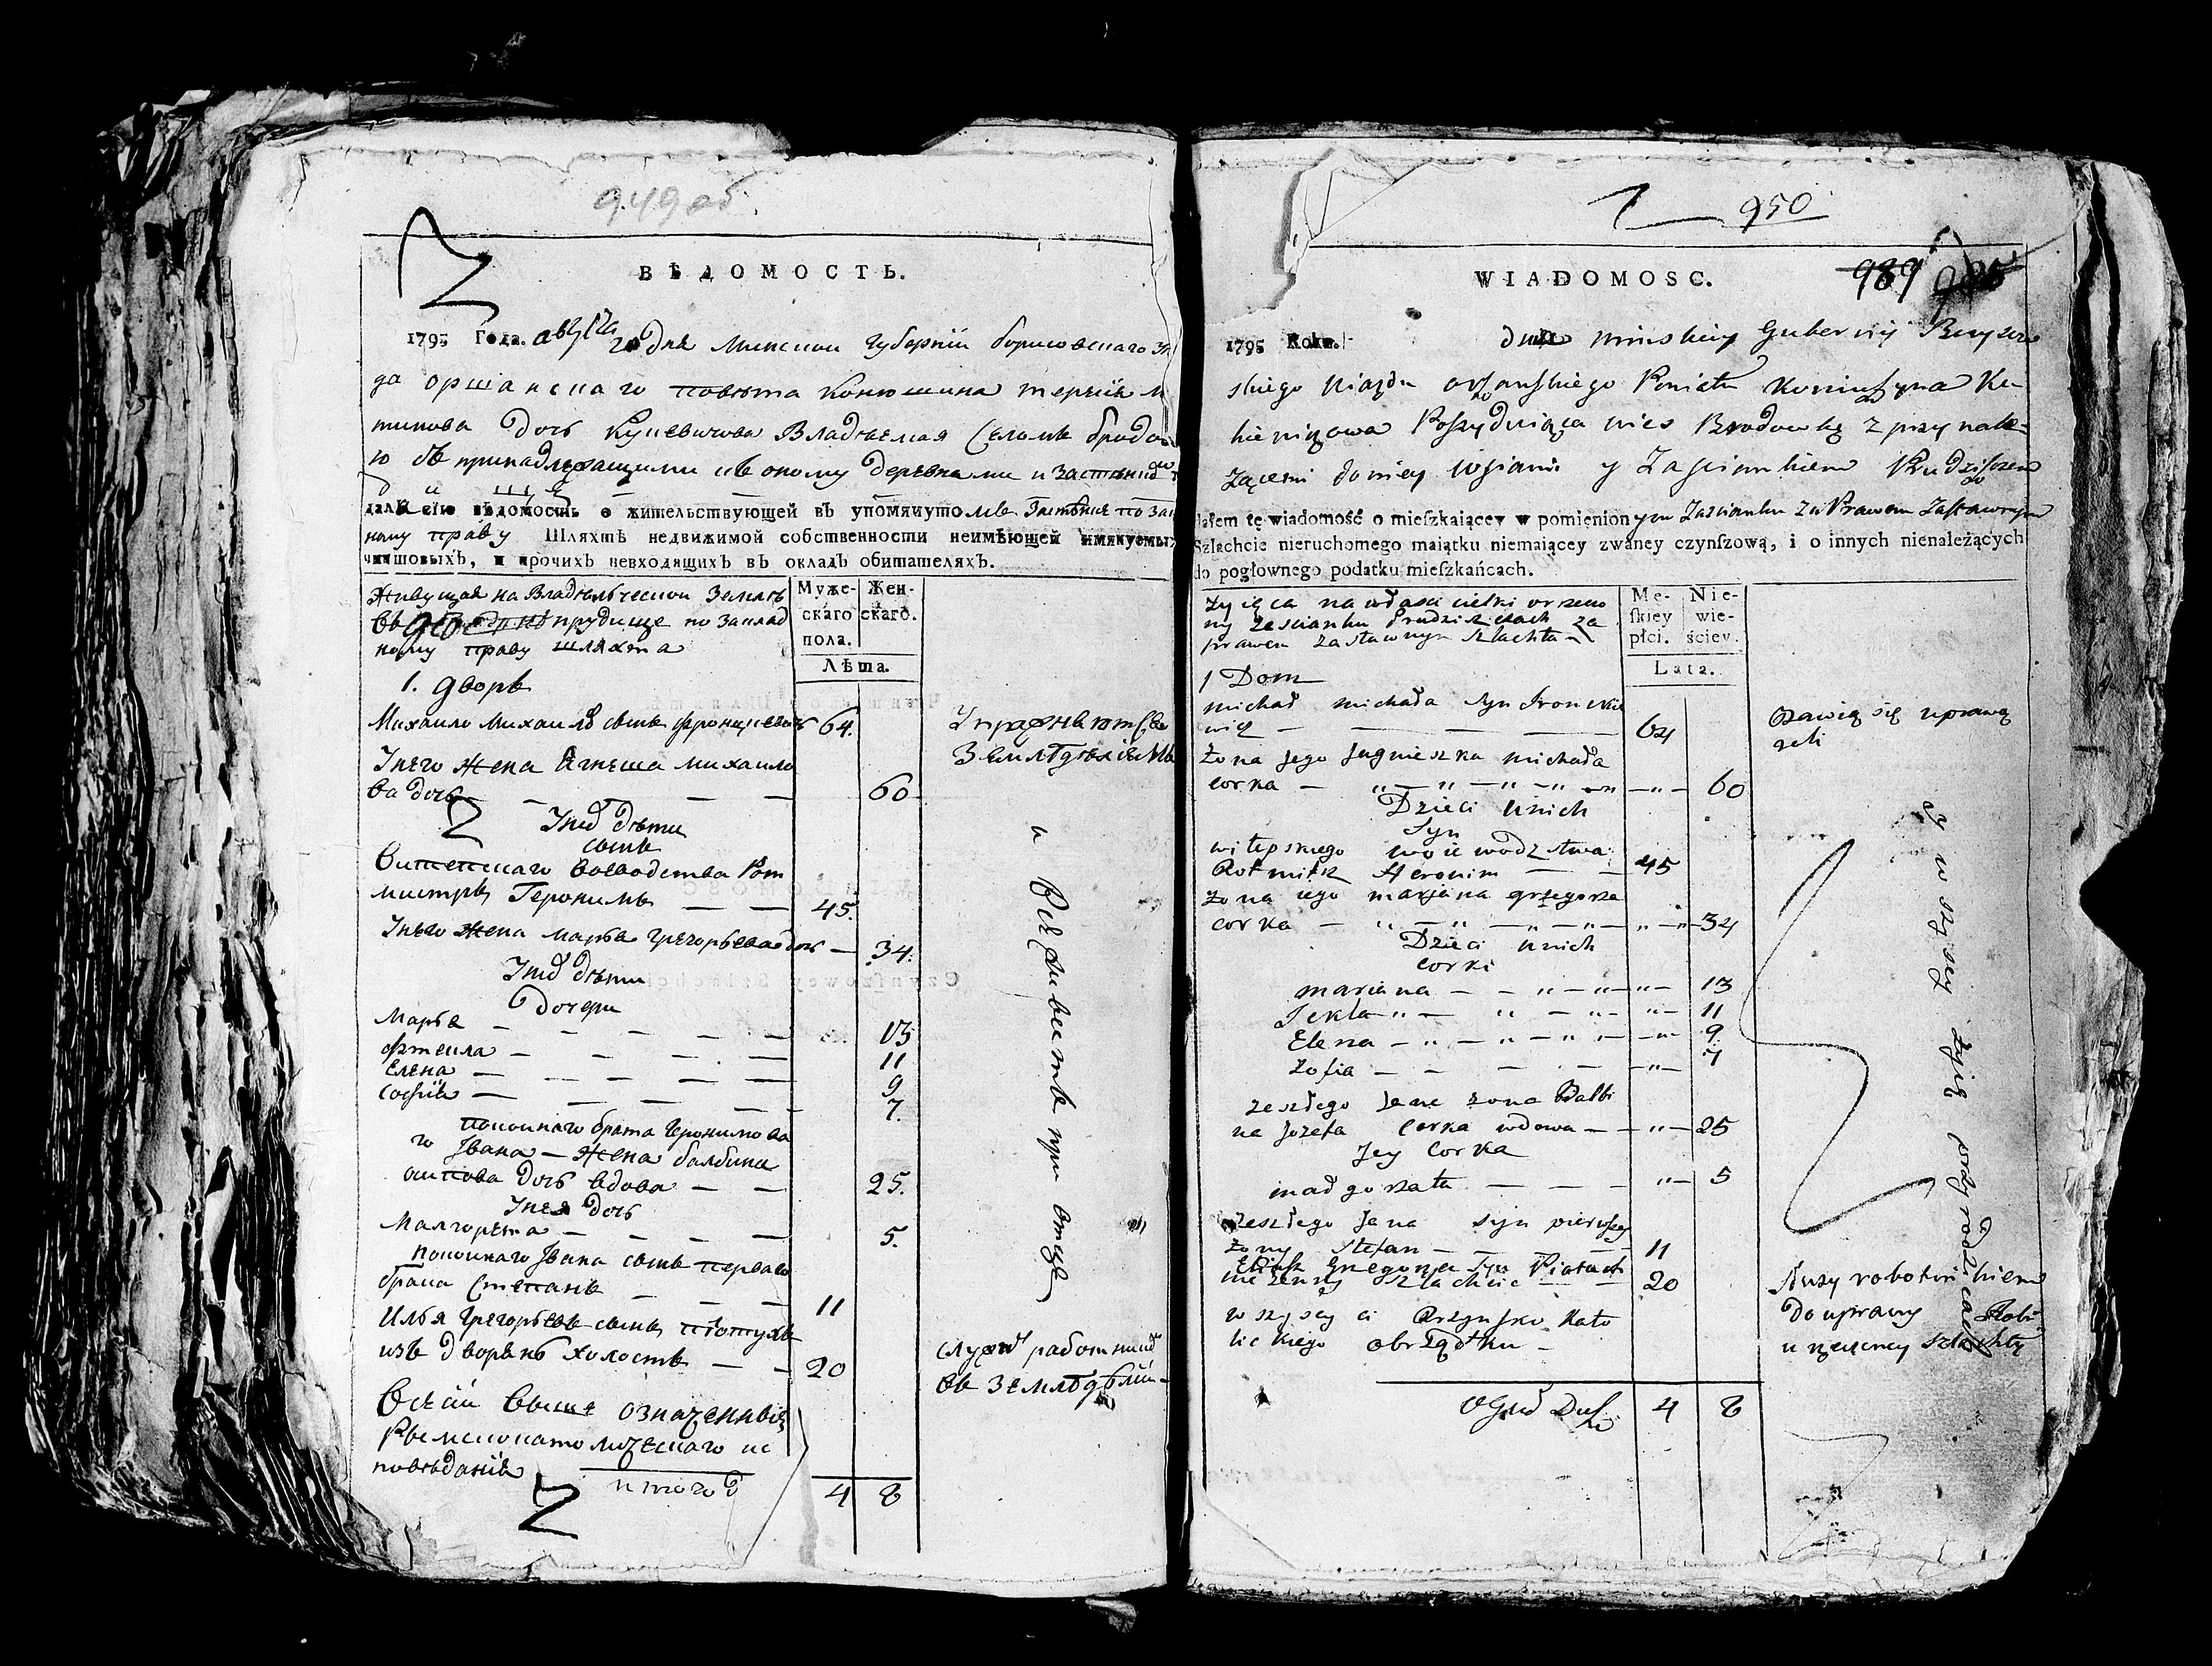 949 об.
ВѢДОМОСТЬ.
1795 Года. августа дня минской губернии борисовскаго
да оршанскаго повѣта конюшина
тинова дочь Куцевичова Владѣемая Селомъ бродо
ю съ принадлежащими къ оному деревнями и застенк
далъ сію вѣдомость о жительствующей въ упомянуто мъ Застѣнке по за
ному праву Шляхтѣ недвижимой собственности неимѣющей имянуемых
чиншовыхъ, и прочихъ невходящихъ въ окладъ обитателяхъ.
живущая на Владѣльческой Землѣ
въ прудище по заклад
ному праву шляхта
Муже-
скаго
пола.
Жен-
скаго.
Лѣта.
1. дворъ
Михаило Михаиловъ сынъ 64.
Упражняются въ
Землѣделіемъ
Унего жена Агнеша михаило
ва дочь — — — — 60
Унихъ дѣти
сынъ
Витепскаго воеводства Рот
мистръ Геронимъ — — 45.
Унего жена марья григорьева дочь — 34.
Унихъ дѣти
дочери
Марья — — — — 13
фтекла — — — — 11
Елена — — — — 9
софия — — — — 7.
покоинаго брата Геронимова
го Ивана — жена балбина
осипова дочь вдова — — 25.
Унея дочь
Малгорета — — — — 5.
покоинаго Ивана сынъ перваго
брака Степанъ — — — 11
Илья григорьевъ сынъ
изъ дворянъ холостъ — — 20
служитъ работникомъ
въ земледѣлии
и все живетъ при отце
Всеи выше означенныя
Римскокатолическаго ис
поведания
итого 4 8
950
989
WIADOMOSC.
1795 Roku. dnia minskiey Gubernij Boryzow
skiego ujazdu orszanskiego Powiatu Koniuszyna Ku
kiewiczowa Possyduiąca wies Brodowkę z przynale-
żącemi do niey wsiami y Zascinkiem Prudziszem
dałem tę wiadomość o mieſzkaiącey w pomienion ym Zascianku za Prawem Zastawnym
Szlachcie nieruchomego maiątku niemaiącey zwaney czynſzową, i o innych nienależących
do pogłownego podatku mieſzkańcach.
żyiąca na własci cielki
ny zescianku Prudziszczach za
prawem zastawnym szlachta
Mę-
ſkiey
płci.
Nie-
wie-
ściey.
Lata.
1 Dom
michał michała syn
wicz — — — 64
Bawią się uprawą
roli
żona jego jagnieszka michała
corka — 60
Dzieci unich
syn
witepskiego woiewodztwa
Rotmistz Heronim — 45
żona iego maryana grzegorza
corka — 34
Dzieci unich
corki
mariana — — 13
Tekla — 11
Elena — 9.
Zofia — — 7
zeszłego Jana żona Balbi
na Jozefa corka wdowa — 25
jey corka
małgorzata — — — 5
zeszłego Jana syn pierwszey
żony Stefan — — — 11
Eliasz Grzegorza Syn
nie żenny szlachcic — 20
Służy robotnikiem
do uprawy Roli
u rzeczoney szlachty
y wszyscy żyią przy rodzicach
wszyscy ci Rzymsko Kato
lickiego obrządku —
Ogul Dusz 4 8